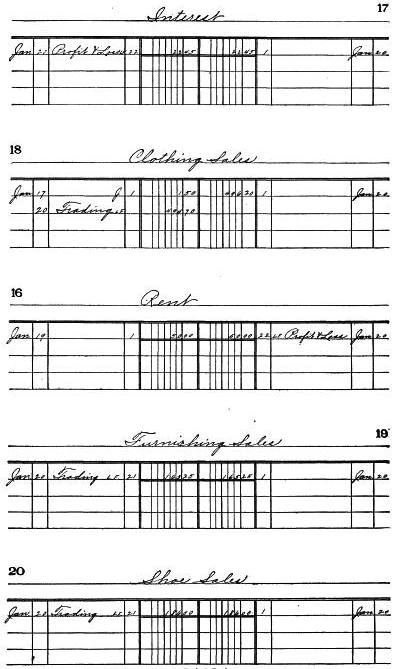 17
Interest
Jan 21 Profit & Loss 22 22 45 22 45 1 Jan 20
18
Clothing Sales
Jan 17 J 1 1 50 1 Jan 20
20 Trading
16
Rent
Jan 19 1 50 00 50 00 22 Profit & Loss Jan 20
Furnishing Sales
19
Jan 20 Trading 21 1 Jan 20
20
Shoe Sales
Jan 20 Trading 21 186 00 186 00 1 Jan 20